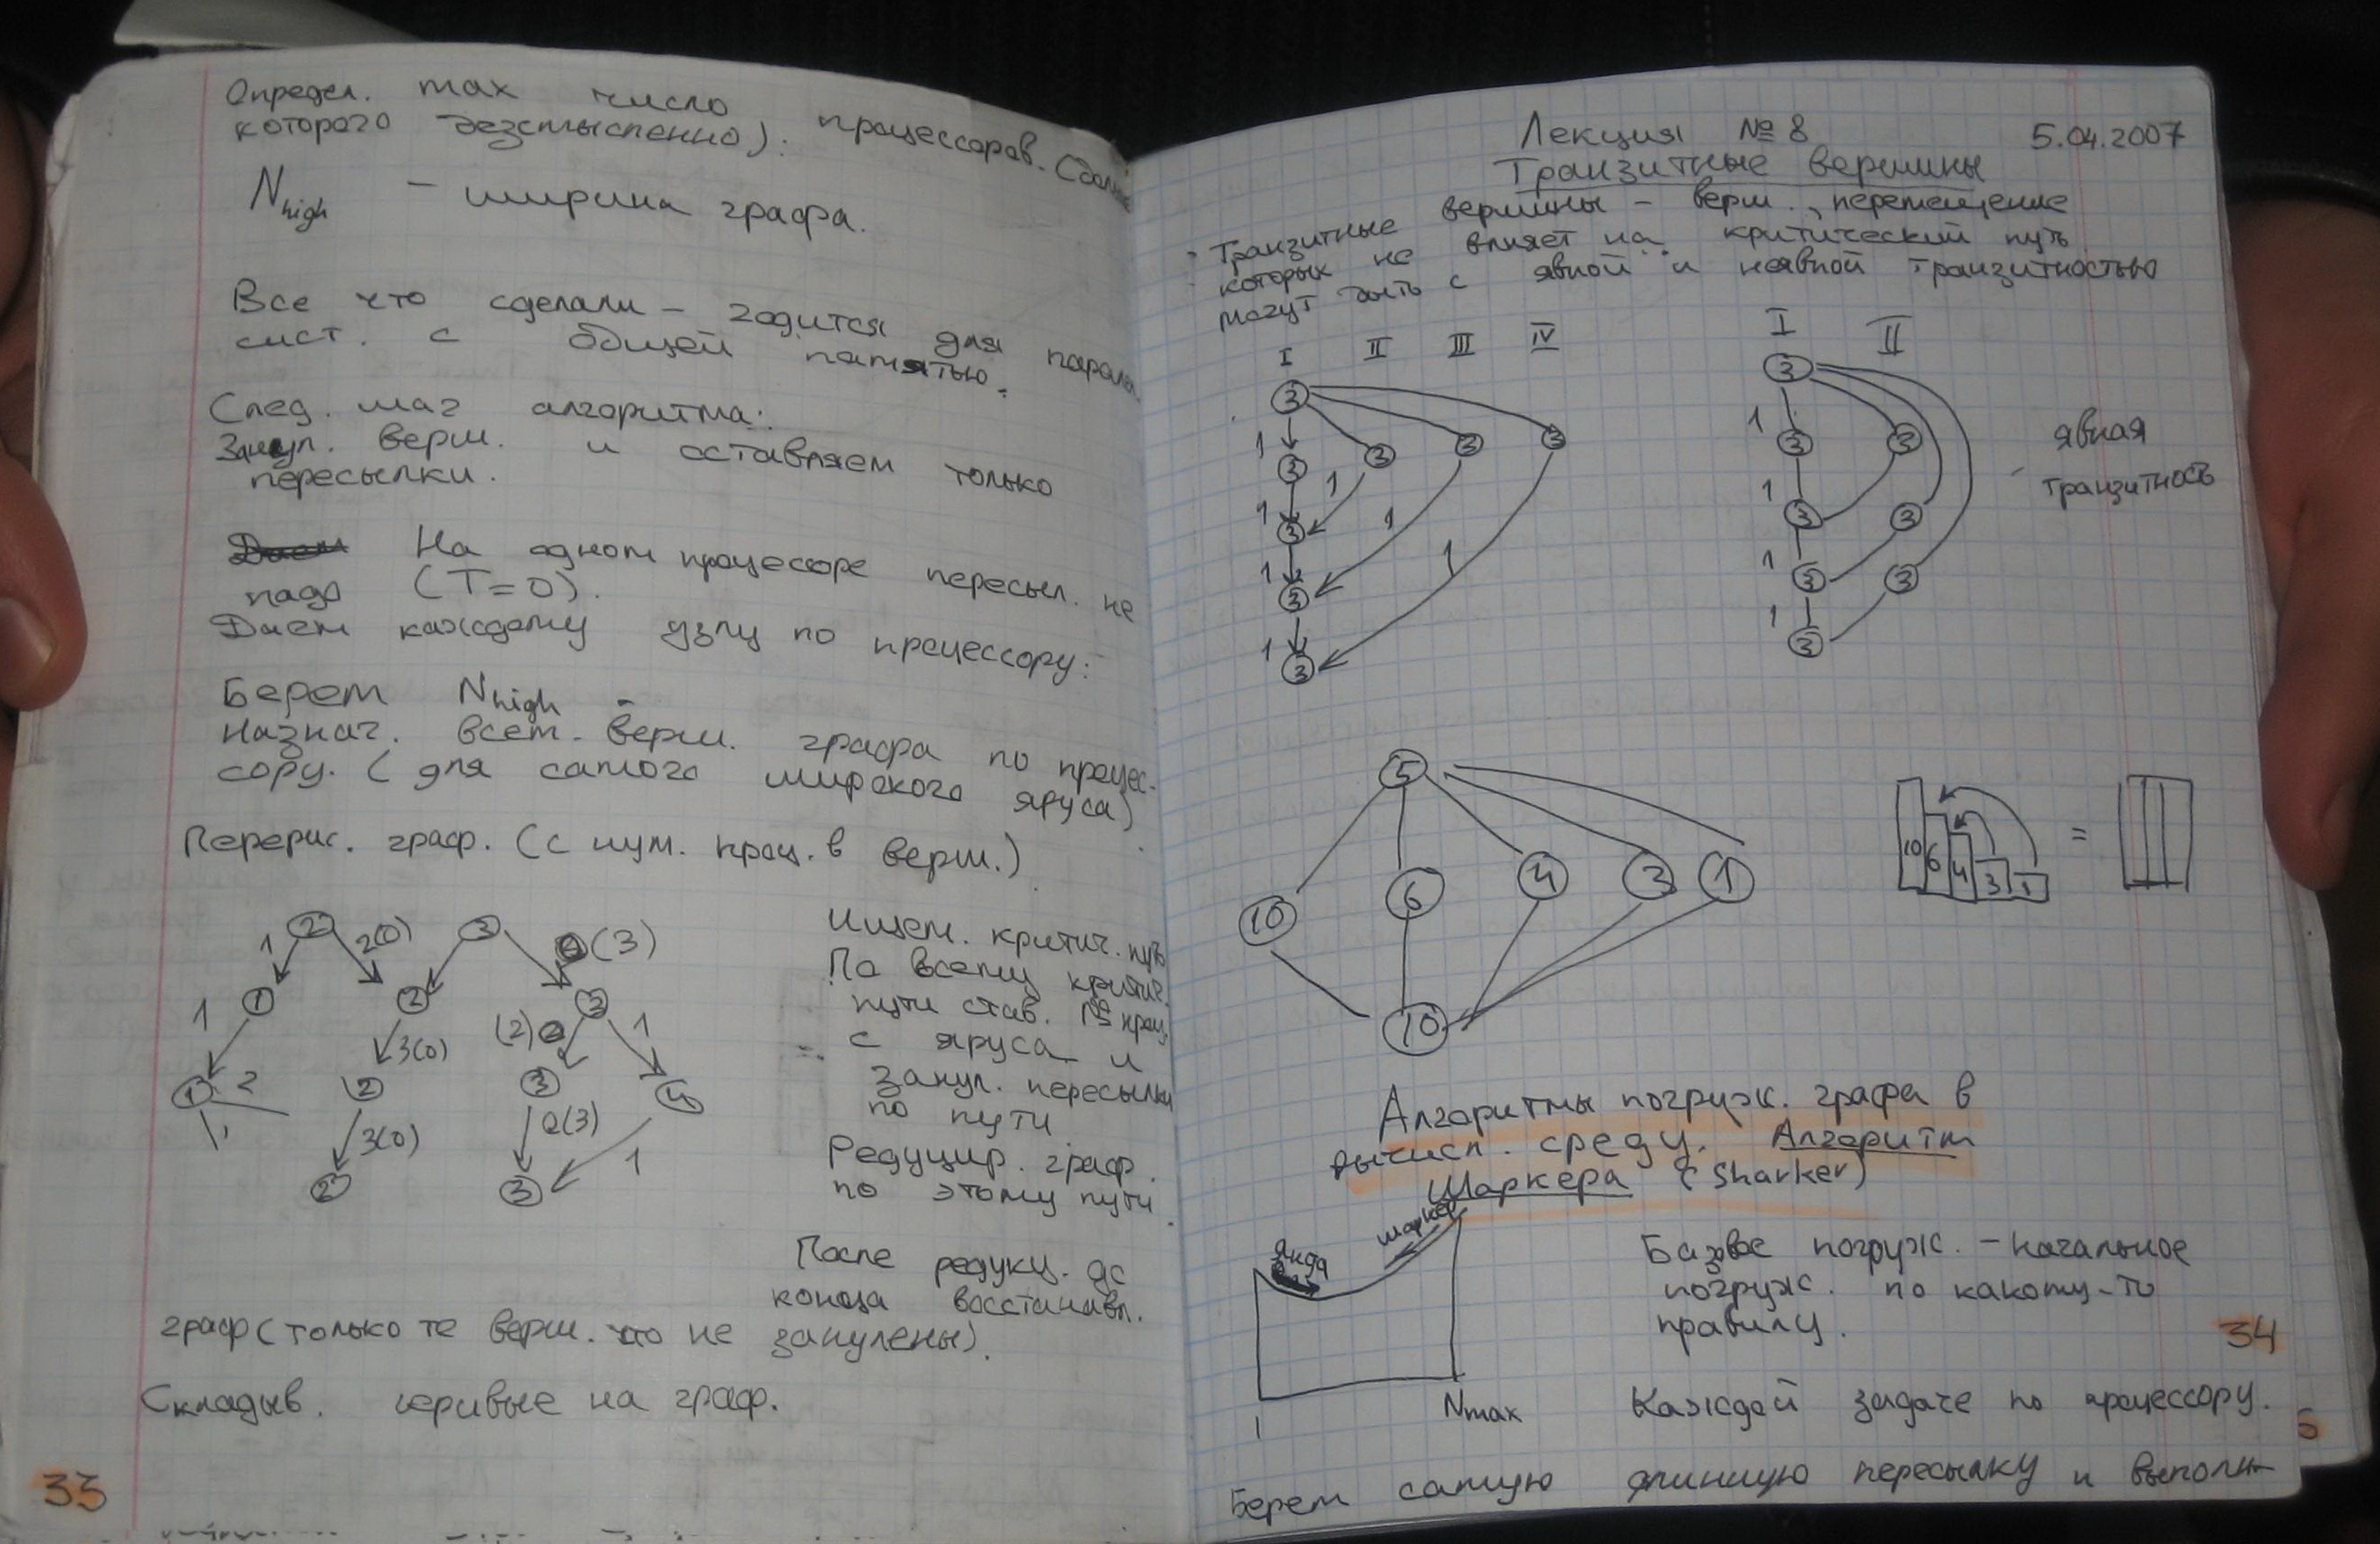 Определ. max число процессоров. (больше
которого безсмысленно):
Nhigh – ширина графа.
Все что сделали – годится для паралл.
сист. с общей памятью.
След. шаг алгоритма:
Занул. верш. и оставляем только
пересылки.
На одном процессоре пересыл. не
надо (T=0).
Даем каждому узлу по процессору:
Берем Nhigh –
Назнач. всем верш. графа по процес-
сору. (для самого широкого яруса)
Перерис. граф. (с нум. проц. в верш.)
2 3
1 2(0) (3)
1 2 3
1 3(0) (2) 1
1 2 2 3 4
3(0) 2(3) 1
2 3
Ищем. критич. путь
По всему критич.
пути став. № проц.
с яруса и
занул. пересылки
по пути.
Редуцир. граф.
по этому пути.
После редукц. до
конца восстанавл.
граф (только те верш. что не занулены).
Складыв. кривые на граф.
33
Лекция № 8 5.04.2007
Транзитные вершины
Транзитные вершины – верш., перемещение
которых не влияет на критический путь
могут быть с явной и неявной транзитностью
I II III IV
3
1 3 3 3 3
1 3 1 1 1
1 3
1 3
I II
3
1 3 3
1 3 3
1 3 3
1 3
явная
транзитность
5
10 6 4 3 1
10
10 6 4 3 1 =
Алгоритмы погруж. графа в
вычисл. среду. Алгоритм
Шаркера (Sharker)
шаркер
Янда
1 Nmax
Базовое погруж. – начальное
погруж. по какому-то
правилу.
34
Каждой задаче по процессору.
Берем самую длинную пересылку и выполн